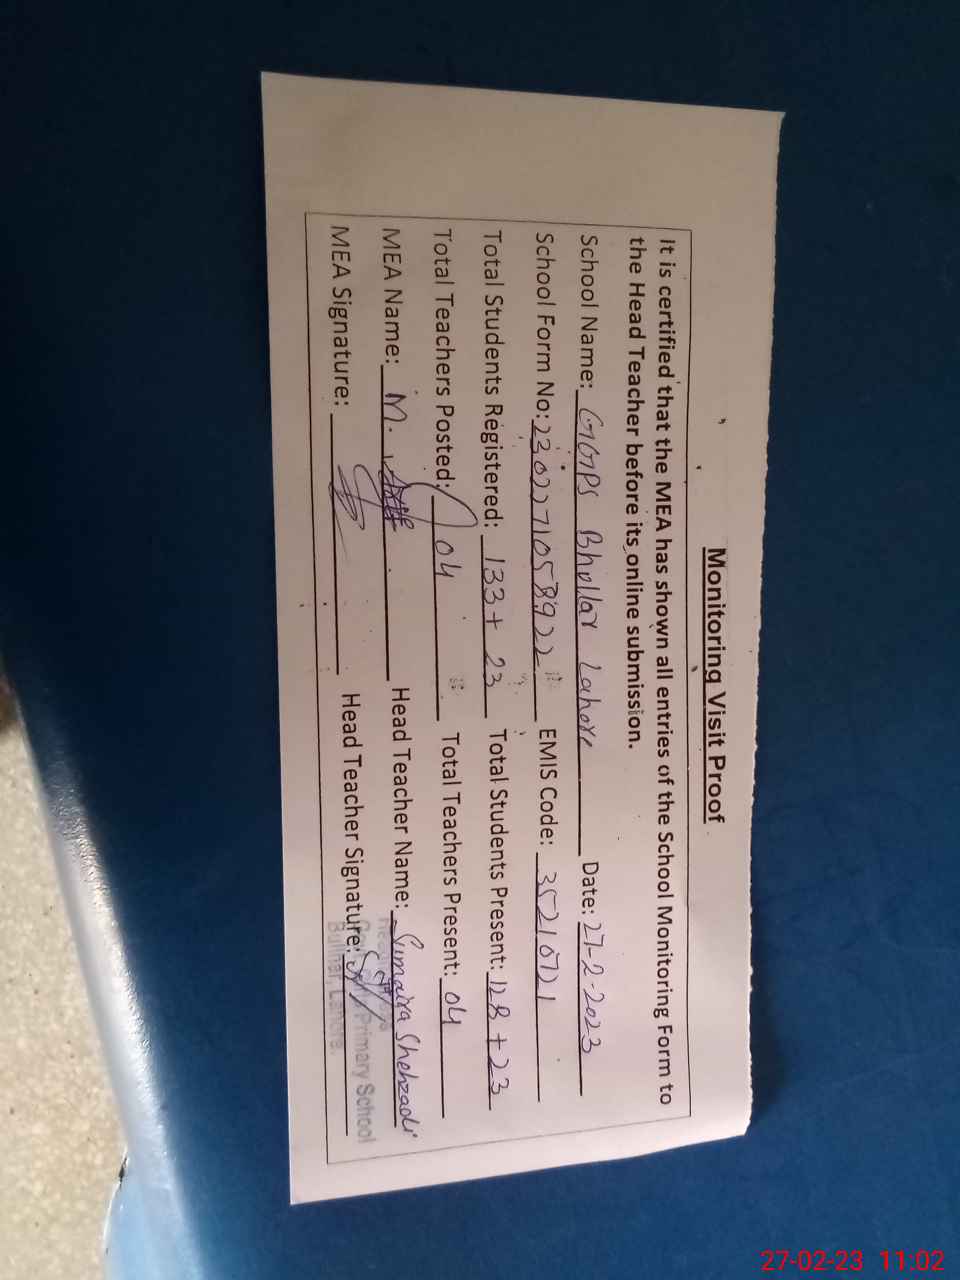 Monitoring Visit Proof
It is certified that the MEA has shown all entries of the School Monitoring Form to
the Head Teacher before its online submission.
School Name: GGPS Bhollar Lahore Date: 27-2-2023
School Form No: 2302271058922 EMIS Code: 35210721
Total Students Registered: 133+ 23 Total Students Present: 128 +23
Total Teachers Posted: 04 Total Teachers Present: 04
MEA Name: M. Head Teacher Name: Sumaira Shehzadi
MEA Signature: Head Teacher Signature:
Primary School
Lahore.
27-02-23 11:02